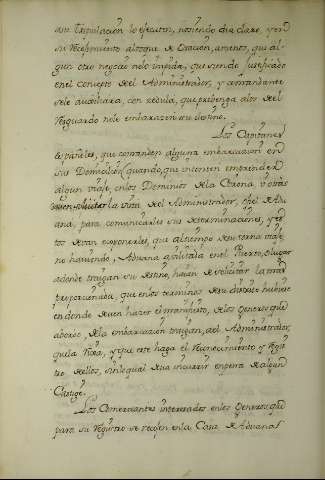 su tripulacion lo ejecuten, haciendo dia claro, y en
su Recivimiento al toque de Oracion, amenos, que al-
gun otro negocio nolo impida, que siendo justificado
en el concepto del Administrador, y amandante
sele auxiliara, con cedula, que prebenga alos del
Resguardo nolo embarazen su destino.
Los Capitanes
Españoles, que comanden alguna embarcacion en
sus Domicilios, quando, que intenten emprender
algun viaje, enlos Dominios dela Corona, ú otros
deven solicitar la vista del Administrador, del Adu
ana, para comunicarles sus determinaciones, y es
tos deran exponerles, que altiempo de su torna viaje
no haviendo, Aduana avilitada en el Puerto, ó lugar
adonde traigan su destino, hasta solicitar la mas
proporcionada, que enlos terminos de su distrito hubiere
en donde deven hacer el manifiesto, delos Generos que
abordo, dela embarcacion traigan, al Administrador,
quela Rixa, y que este haga el Reconocimiento y Regis
tro dellos, sinloqual deva incurrir en pena de algun
Castigo.
Los Comerciantes interesados enlos Generos que
para su Registro se recojen enla Casa de Aduanas